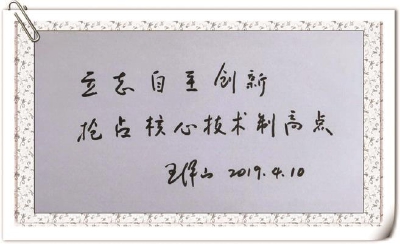 立志自主创新
抢占核心技术制高点
王保山 2019.4.10